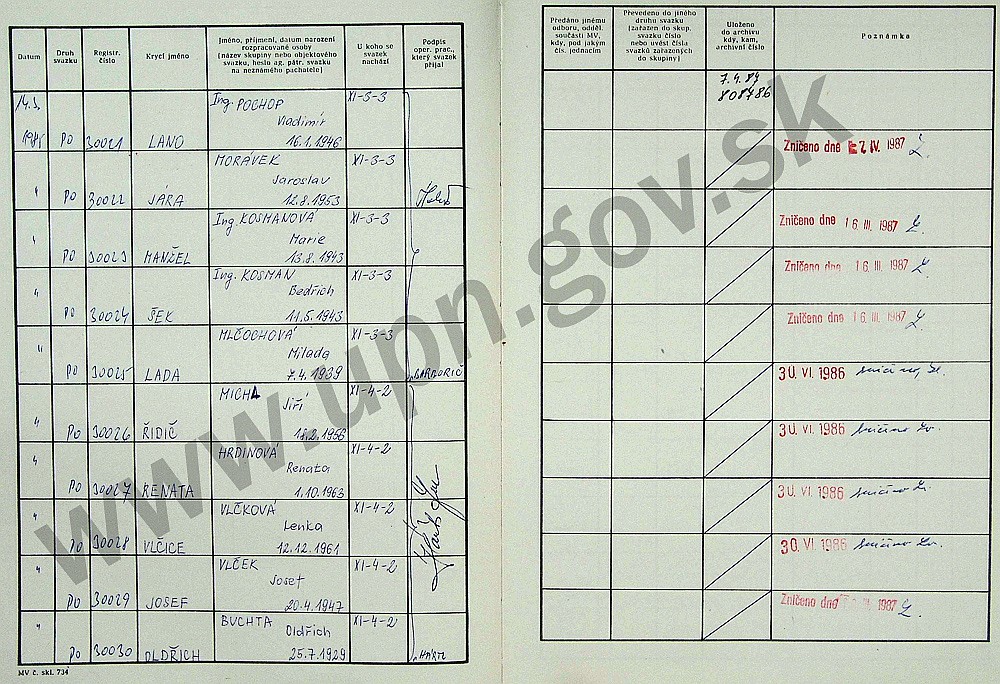 Datum
Druh svazku
Registr. číslo
Krycí jméno
Jméno, příjmení, datum narození
rozpracované osoby
(název skupiny nebo objektového
svazku, heslo ag. pátr. svazku
na neznámého pachatele)
U koho se
svazek
nachází
Podpis
oper. prac.,
který svazek
přijal
14.3. Ing. POCHOP XI-3-3
Vladimír
PO 30021 LANO 16.1.1946
MORÁVEK XI-3-3
Jaroslav
" PO 30022 JÁRA 12.8.1953
Ing. KOSMANOVÁ XI-3-3
Marie
" PO 30023 MANŽEL 13.8.1943
Ing. KOSMAN XI-3-3
Bedřich
" PO 30024 ŠEK 11.5.1943
MLČOCHOVÁ XI-3-3
Milada
" PO 30025 LADA 7.4.1939
MICHL XI-4-2
Jiří
" PO 30026 ŘIDIČ 18.2.1956
HRDINOVÁ XI-4-2
Renata
" PO 30027 RENATA 1.10.1963
VLČKOVÁ XI-4-2
Lenka
" PO 30028 VLČICE 12.12.1961
VLČEK XI-4-2
Josef
" PO 30029 JOSEF 20.4.1947
BUCHTA XI-4-2
Oldřich
" PO 30030 OLDŘICH 25.7.1929
MV č. skl. 734
Předáno jinému
odboru, odděl.
součásti MV,
kdy, pod jakým
čís. jednacím
Převedeno do jiného
druhu svazku
(zařazen do skup.
svazku číslo
nebo uvést čísla
svazků zařazených
do skupiny)
Uloženo
do archivu
kdy, kam,
archivní číslo
Poznámka
7.4.89
808786
Zničeno dne 7. IV. 1987
Zničeno dne 16. III. 1987
Zničeno dne 16. III. 1987
Zničeno dne 16. III. 1987
30. VI. 1986
30. VI. 1986
30. VI. 1986
30. VI. 1986
Zničeno dne 1987
www.upn.gov.sk